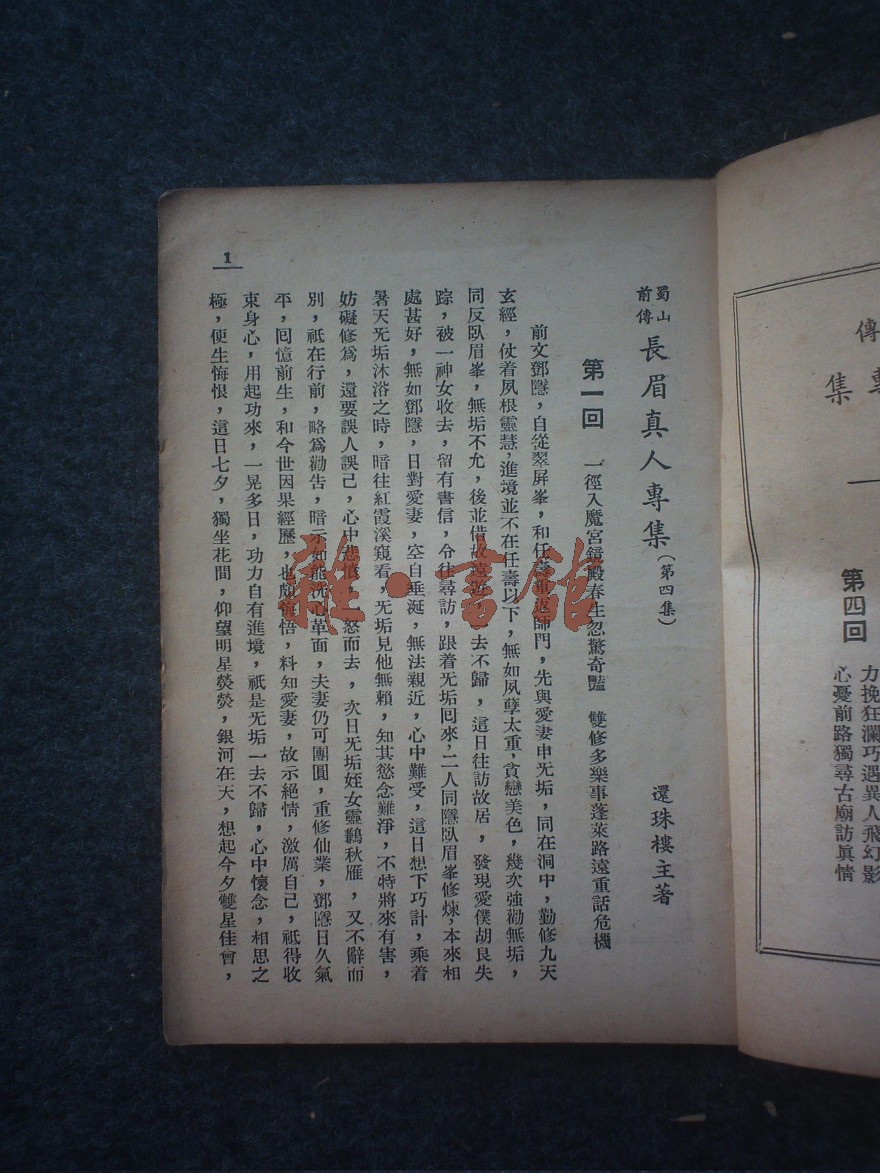 傳
集
第四回
力挽狂瀾巧遇異人飛幻影
心憂前路獨尋古廟訪眞情
蜀山前傳 長眉真人專集（第四集）
還珠樓主著
第一回 一徑入魔宮錦殿春生忽驚奇豔 雙修多樂事蓬萊路遠重話危機
前文鄧隱，自從翠屏峯，和任壽重返師門，先與愛妻申无垢，同在洞中，勤修九天
玄經，仗着夙根靈慧，進境並不在任壽以下，無如夙孽太重，貪戀美色，幾次強勸無垢，
同反臥眉峯，無垢不允，後並借故遠遊，一去不歸，這日往訪故居，發現愛僕胡良失
踪，被一神女收去，留有書信，令往尋訪，跟着无垢回來，二人同隱臥眉峯修煉，本來相
處甚好，無如鄧隱，日對愛妻，空自垂涎，無法親近，心中難受，這日想下巧計，乘着
暑天无垢沐浴之時，暗往紅霞溪窺看，无垢見他無賴，知其慾念難淨，不特將來有害，
妨礙修爲，還要誤人誤己，心中悲憤，一怒而去，次日无垢姪女靈鵰秋雁，又不辭而
別，祇在行前，略爲勸告，暗示如能洗心革面，夫妻仍可團圓，重修仙業，鄧隱日久氣
平，囘憶前生，和今世因果經歷，也頗悔悟，料知愛妻，故示絕情，激厲自己，祇得收
束身心，用起功來，一晃多日，功力自有進境，祇是无垢一去不歸，心中懷念，相思之
極，便生悔恨，這日七夕，獨坐花間，仰望明星熒熒，銀河在天，想起今夕雙星佳會，
1
雜·書館